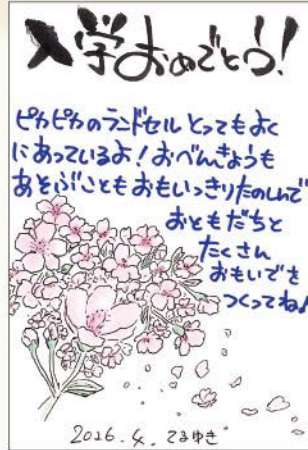 入学おめでとう!
ピカピカのランドセルとってもよく
にあっているよ!おべんきょうも
あそぶこともおもいっきりたのしんで
おともだちと
たくさん
おもいでを
つくってね♪
2016.4.てるゆき